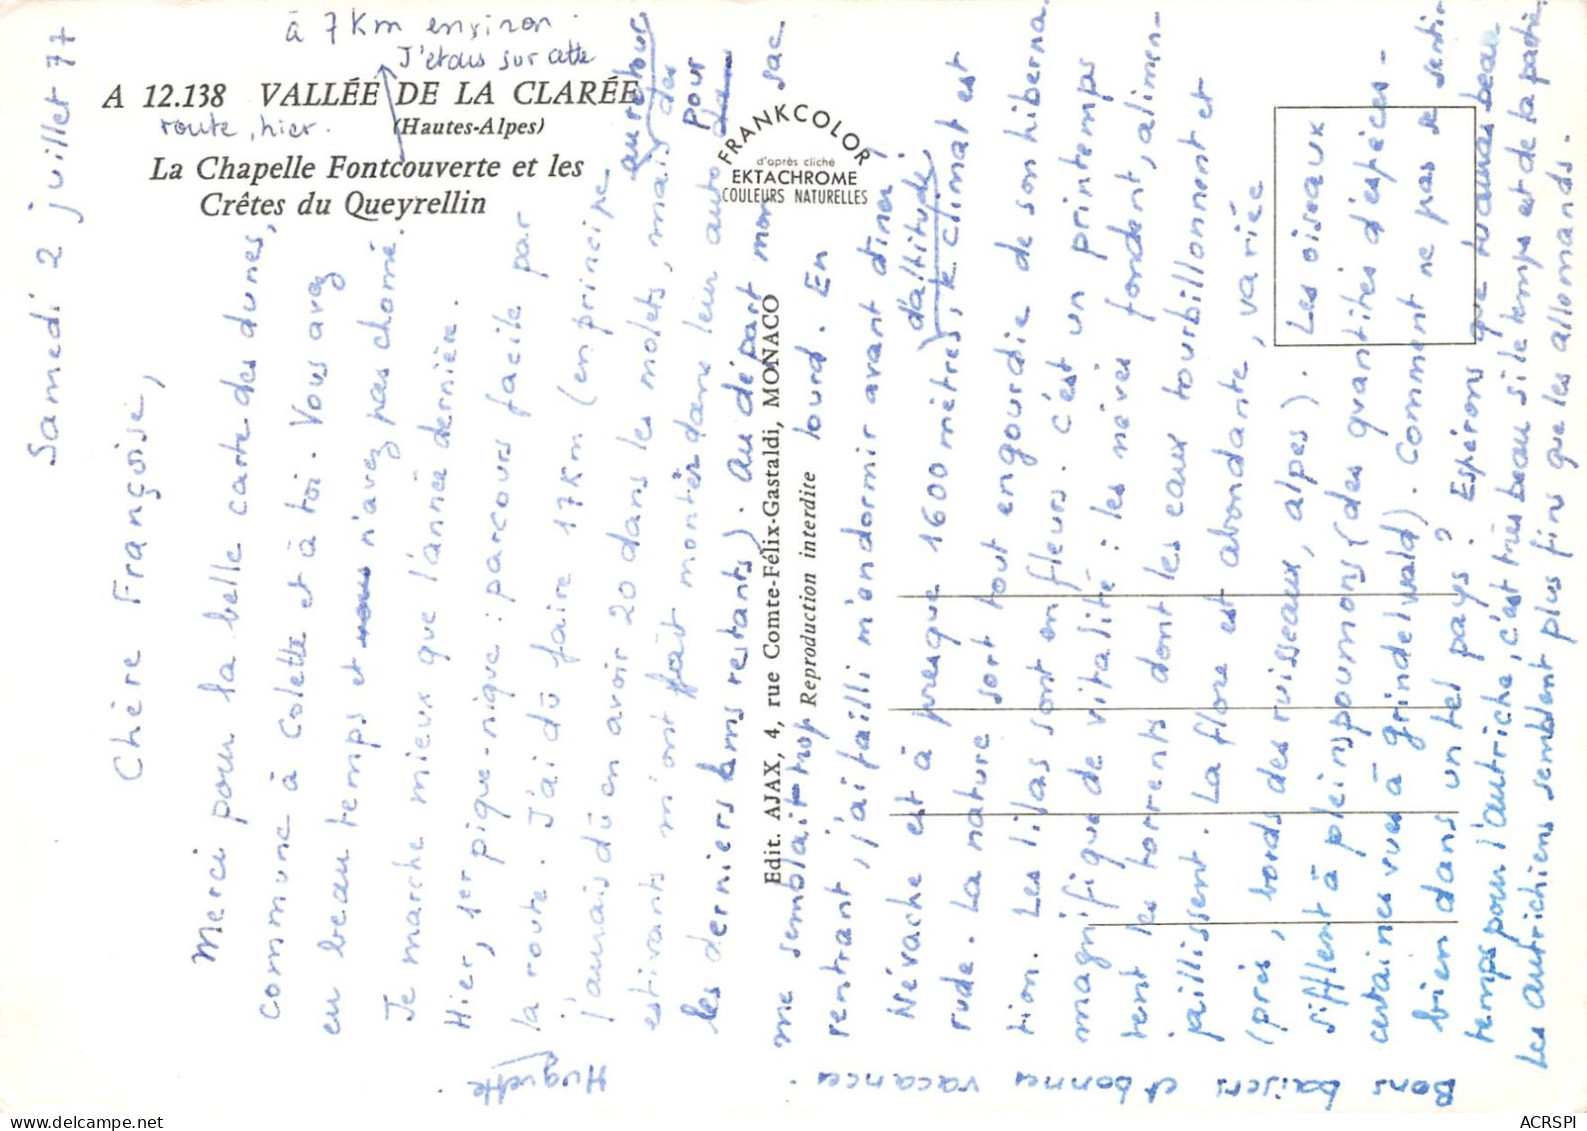 à 7 Km environ.
J'étais sur cette
route, hier.
A 12.138 VALLÉE DE LA CLARÉE
(Hautes-Alpes)
La Chapelle Fontcouverte et les
Crêtes du Queyrellin
FRANKCOLOR
d'après cliché
EKTACHROME
COULEURS NATURELLES
Edit. AJAX, 4, rue Comte-Félix-Gastaldi, MONACO
Reproduction interdite
Samedi 2 juillet 77
Chère Françoise,
Merci pour la belle carte des dunes,
commune à Colette et à toi. Vous avez
eu beau temps et n'avez pas chomé.
Je marche mieux que l'année dernière.
Hier, 1er pique-nique : parcours facile par
la route. J'ai dû faire 17 Km (en principe
j'aurais dû en avoir 20 dans les molets, au retour, mais des
estivants m'ont fait monter dans leur auto pour
les derniers kms restants). Au départ mon sac
me semblait trop lourd. En
rentrant, j'ai failli m'endormir avant dîner !
Névache est à presque 1600 mètres d'altitude, le climat est
rude. La nature sort tout engourdie de son hiberna
tion. Les lilas sont en fleurs. C'est un printemps
magnifique de vitalité : les névés fondent, alimen-
tent les torrents dont les eaux tourbillonnent et
jaillissent. La flore est abondante, variée
(près, bords des ruisseaux, alpes). Les oiseaux
sifflent à pleins poumons (des quantités d'espèces-
certaines vues à Grindelwald). Comment ne pas se sentir
bien dans un tel pays ? Espérons que tu auras beau
temps pour l'Autriche, c'est très beau si le temps est de la partie.
Les autrichiens semblent plus fins que les allemands.
Bons baisers et bonnes vacances.
Huguette
ACRSPI